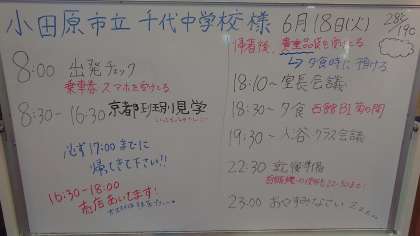 小田原市立 千代中学校 様 6月18日(火)
28℃/19℃
8:00 出発チェック
乗車券 スマホを受けとる
8:30-16:30 京都班別見学
必ず17:00までに
帰ってきて下さい!!
16:30-18:00
売店あいてます!
帰着後、貴重品袋を受けとる
→夕食時に預ける
18:10~室長会議
18:30~夕食 西館B1
19:30~入浴 クラス会議
22:30 就寝準備
22:30まで!
23:00 おやすみなさい zzz...